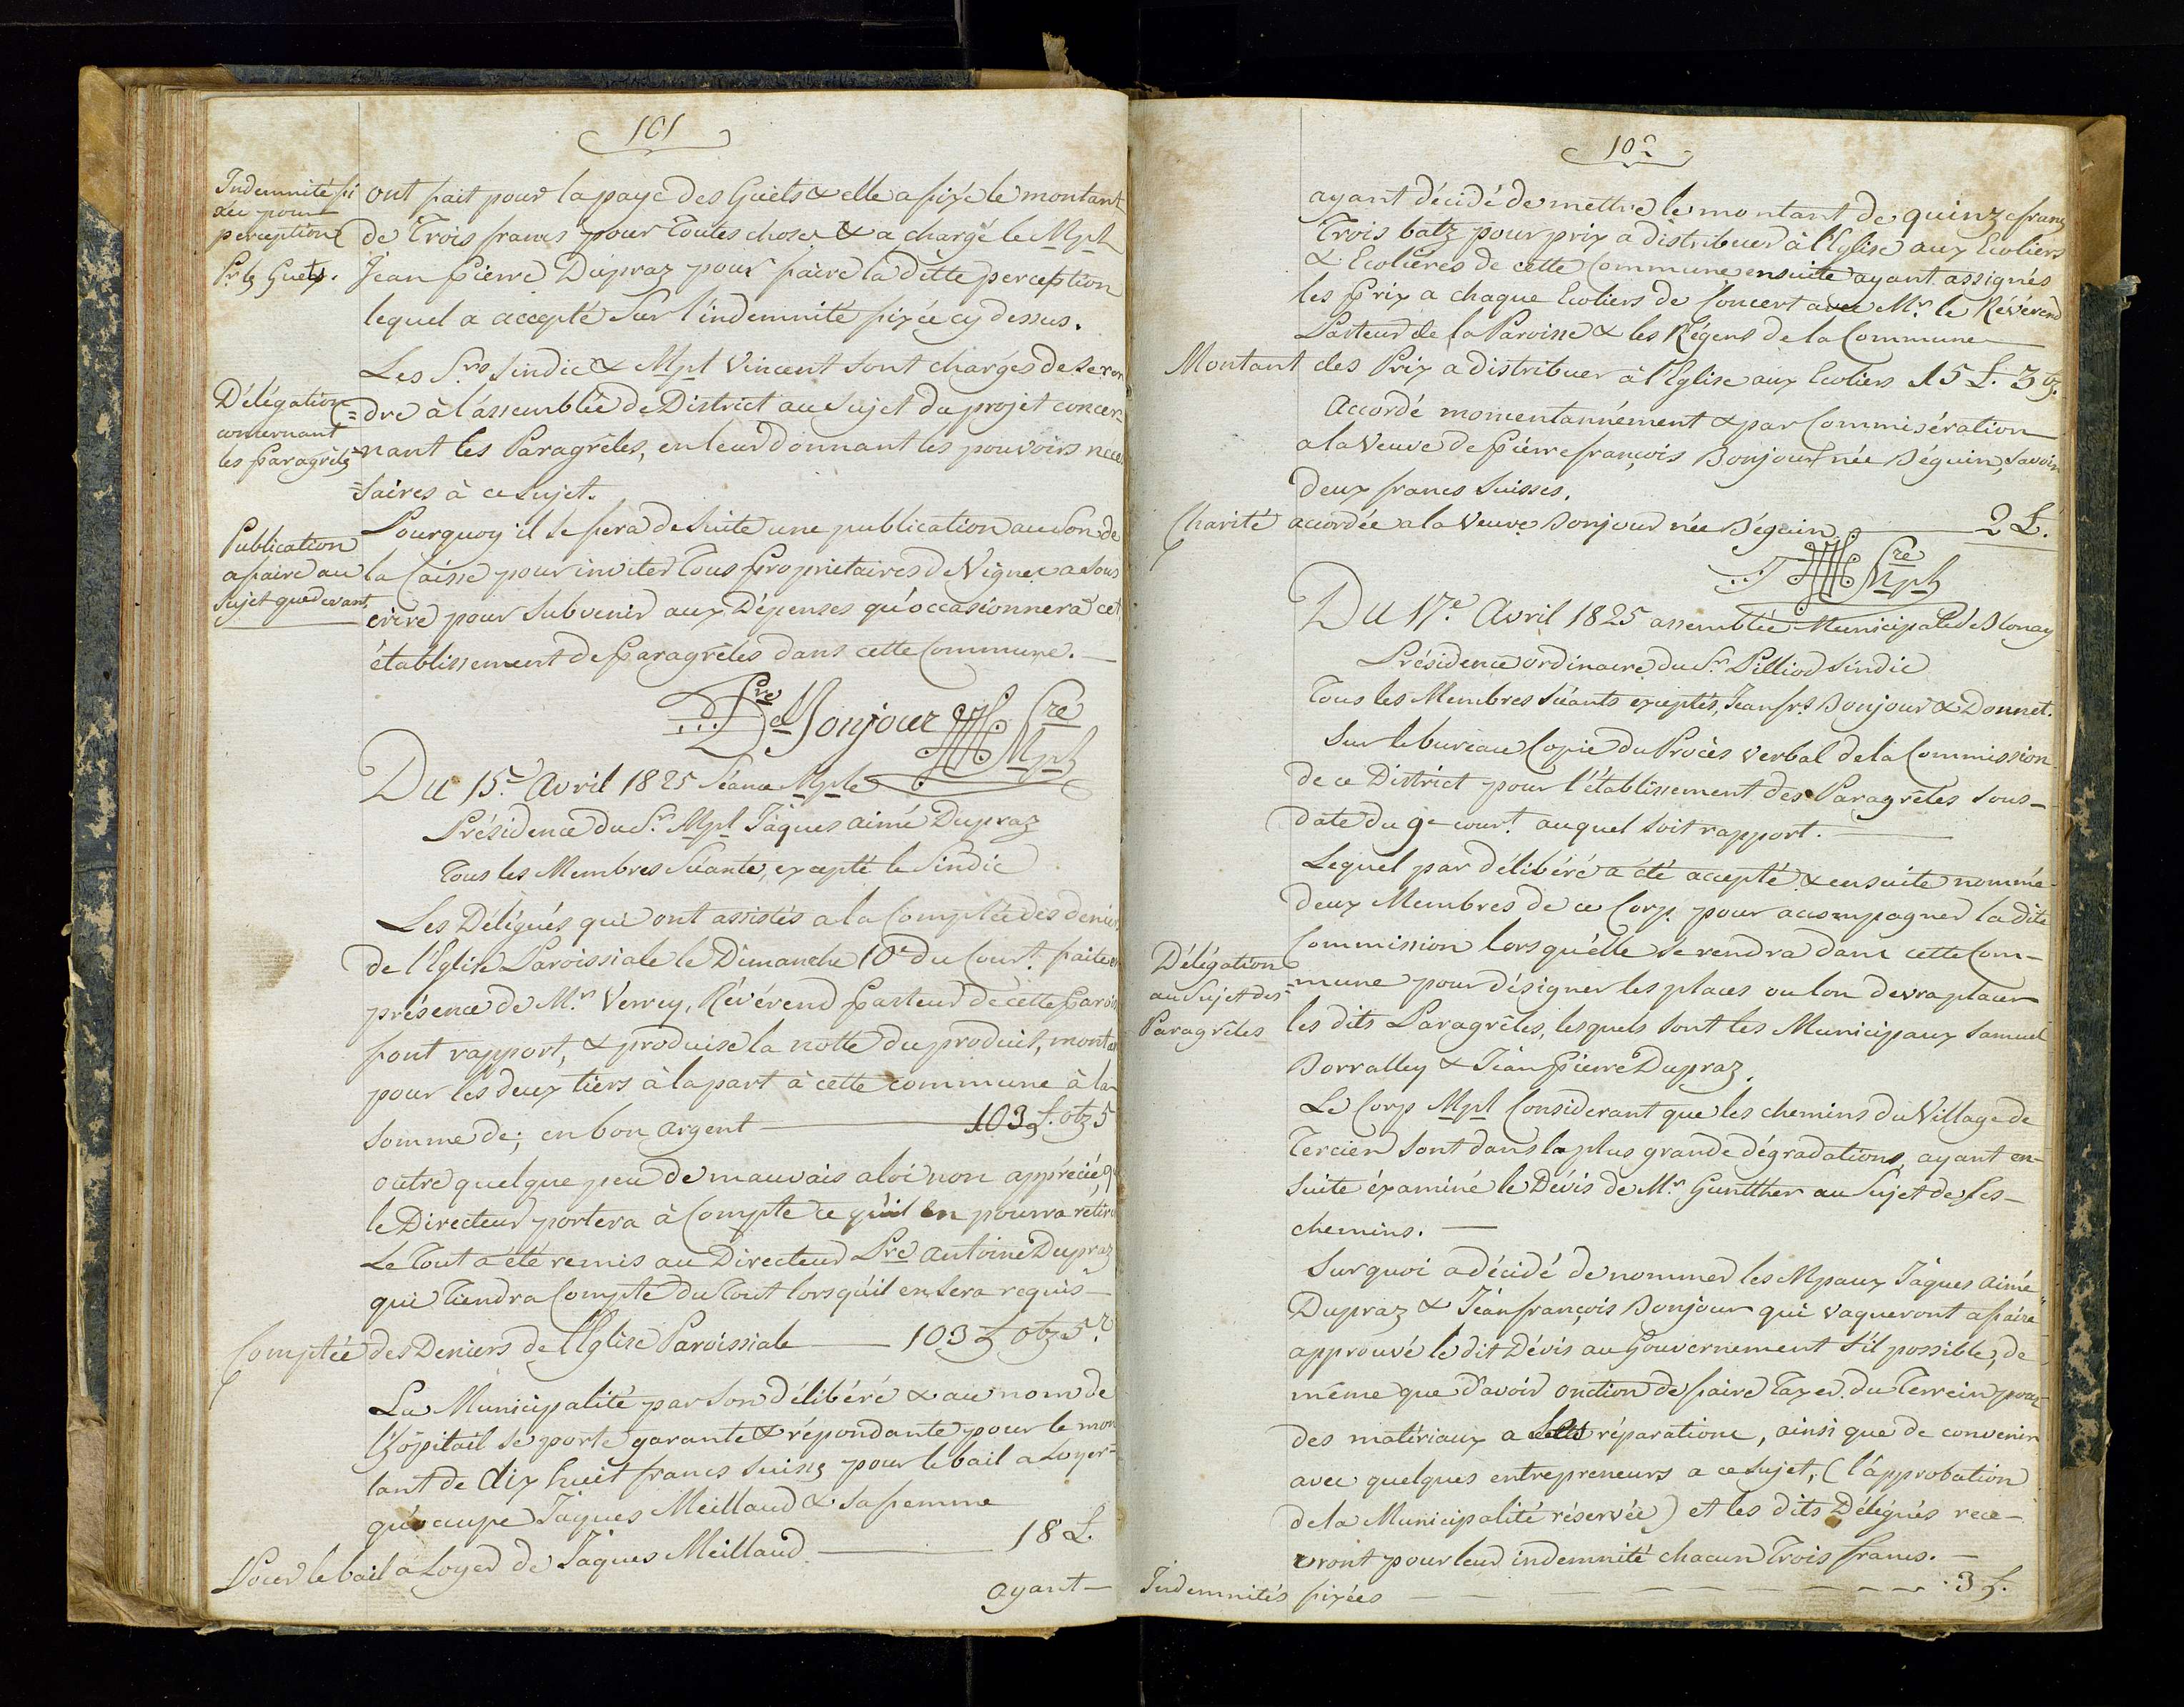 101
Indemnité fi
xée pour
perception
Pr. les Guets.
ont fait pour la paye des Guets & elle a fixé le montant
de Trois francs pour toutes choses & a chargé le Mpl
Jean Pierre Dupraz pour faire la ditte perception
lequel a accepté sur l'indemnité fixée cy dessus.
Les Srs. Sindic & Mpl Vincent sont chargés de se ren
Délégation
concernant
les Paragrêles
=dre à l'assemblée de District au sujet du projet concer-
nant les Paragrêles, en leur donnant les pouvoirs néces
=saires à ce sujet.
Publication
a faire au
sujet que devant
Pourquoy il se fera de suite une publication au son de
la Caisse pour inviter tous Propriétaires de Vignes a sous
crire pour subvenir aux Dépenses qu'occasionnera cet
établissement de Paragrêles dans cette Commune.
Pre. Bonjour Sre
Mpl
Du 15e. Avril 1825 Séance Mple
Présidence du Sr. Mpl Jâques aimé Dupraz
Tous les Membres Séants, excepté le Sindic
Les Délégués qui ont assistés a la Comptée des denier
de l'Eglise Paroissiale le Dimanche 10e du Court. faite en
présence de Mr. Verrey, Révérend Pasteur de cette Parois
font rapport, & produise la notte du produit, montan
pour les deux tiers à la part à cette commune à la
somme de; en bon argent 103 £. btz 5
outre quelque peu de mauvais aloi non apprécié, q
le Directeur portera à Compte ce qu'il en pourra retire
Le tout a été remis au Directeur Pre antoine Dupraz
qui tiendra Compte du tout lorsqu'il en sera requis
Comptée des Deniers de l'Eglise Paroissiale 103 £ btz 5.
La Municipalité par son délibéré & au nom de
l'hôpital se porte garante & répondante pour le mon
tant de dix huit francs suises pour le bail a Loyer
qu'ocupe Jâques Meillaud & sa femme
Pour le bail a Loyer de Jâques Meillaud 18 £.
ayant
102
ayant décidé de mettre le montant de quinze francs
Trois batz pour prix a distribuer à l'Eglise aux Ecoliers
& Ecolières de cette Commune ensuite ayant assignés
les Prix a chaque Ecoliers de Concert avec Mr. le Révérend
Pasteur de la Paroisse & les Régens de la Commune
Montant des Prix a distribuer à l'Eglise aux Ecoliers 15 £. 3 btz.
Accordé momentannément & par Commisération
a la Veuve de Pierre françois Bonjour née Béguin, savoir
deux francs suisses.
Charité accordée a la Veuve Bonjour née Béguin 2 £.
Sre
Mpl
Du 17e. Avril 1825 assemblée Municipale de Blonay
Présidence ordinaire du Sr. Pilliod Sindic
Tous les Membres Séants exceptés, Jean frs. Bonjour & Donnet.
Sur le bureau Copie du Procès verbal de la Commission
de ce District pour l'établissement des Paragrêles sous-
date du 9e court. auquel soit rapport.
Lequel par délibéré a été accepté & ensuite nommé
deux Membres de ce Corp. pour accompagner la dite
Délégation
au Sujet des
Paragrêles
Commission lorsqu'elle se rendra dans cette Com-
=mune pour désigner les places ou lon devra placer
les dits Paragrêles, lesquels sont les Municipaux Samuel
Borralley & Jéan Pierre Dupraz.
Le Corp Mpl Considerant que les chemins du Village de
Tercier sont dans la plus grande dégradations, ayant en-
suite éxaminé le Dévis de Mr. Guntther au Sujet de ses
chemins.
Sur quoi a décidé de nommer les Mpaux Jâques Aimé
Dupraz & Jéan françois Bonjour qui vaqueront a faire
approuvé le dit Dévis au Gouvernement s'il possible, de
même que d'avoir onction de faire Taxer du terrein pour
des matériaux a ses réparations, ainsi que de convenir
avec quelques entrepreneurs a ce sujet, (l'approbation
de la Municipalité réservée) et les dits Délégués rece-
vront pour leur indemnité chacun trois francs.
Indemnités fixées 3 £.